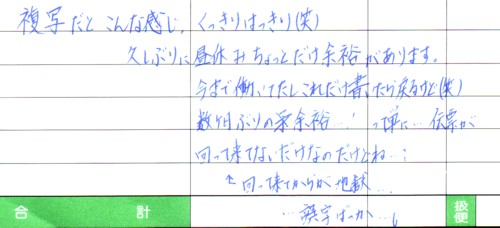 複写だと こんな感じ。くっきりはっきり(笑)
久しぶりに昼休みちょっとだけ余裕があります。
今まで働いてたしこれだけ書いたら戻るけど(笑)
数ヶ月ぶりの余裕…! って単に…伝票が
回って来てないだけなのだけどね…;
↑回って来てからが地獄…
…誤字ばっか…
合計
扱便